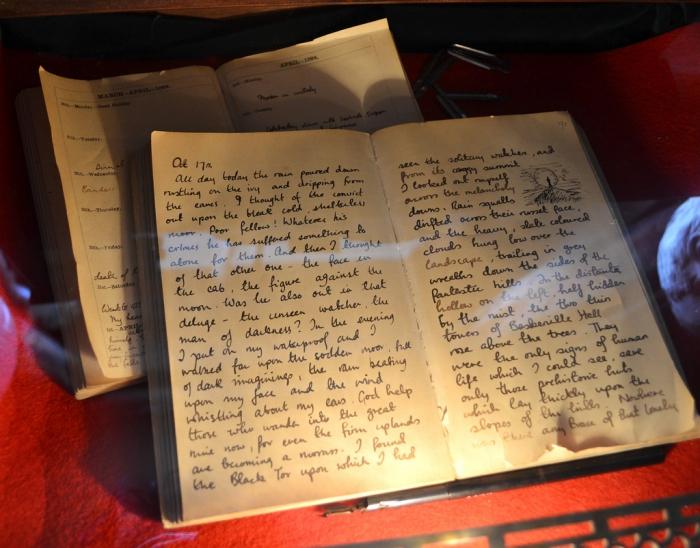 MARCH-APRIL
APRIL
Oct 17th
All day today the rain poured down
rustling on the ivy and dripping from
the eaves. I thought of the convict
out upon the bleak cold, shelterless
moor. Poor fellow! Whatever his
crimes he has suffered something to
atone for them. And then I thought
of that other one - the face in
the cab, the figure against the
moon. Was he also out in that
deluge - the unseen watcher, the
man of darkness? In the evening
I put on my waterproof and I
walked far upon the sodden moor, full
of dark imaginings, the rain beating
upon my face and the wind
whistling about my ears. God help
those who wander into the great
mire now, for even the firm uplands
are becoming a morass. I found
the Black Tor upon which I had
seen the solitary watcher, and
from its craggy summit
I looked out myself
across the melancholy
downs. Rain squalls
drifted across their russet face,
and the heavy, slate coloured
clouds hung low over the
landscape, trailing in grey
wreaths down the sides of the
fantastic hills. In the distant
hollow on the left, half hidden
by the mist, the two thin
towers of Baskerville Hall
rose above the trees. They
were the only signs of human
life which I could see, save
only those prehistoric huts
which lay thickly upon the
slopes of the hills. Nowhere
was there any trace of that lonely